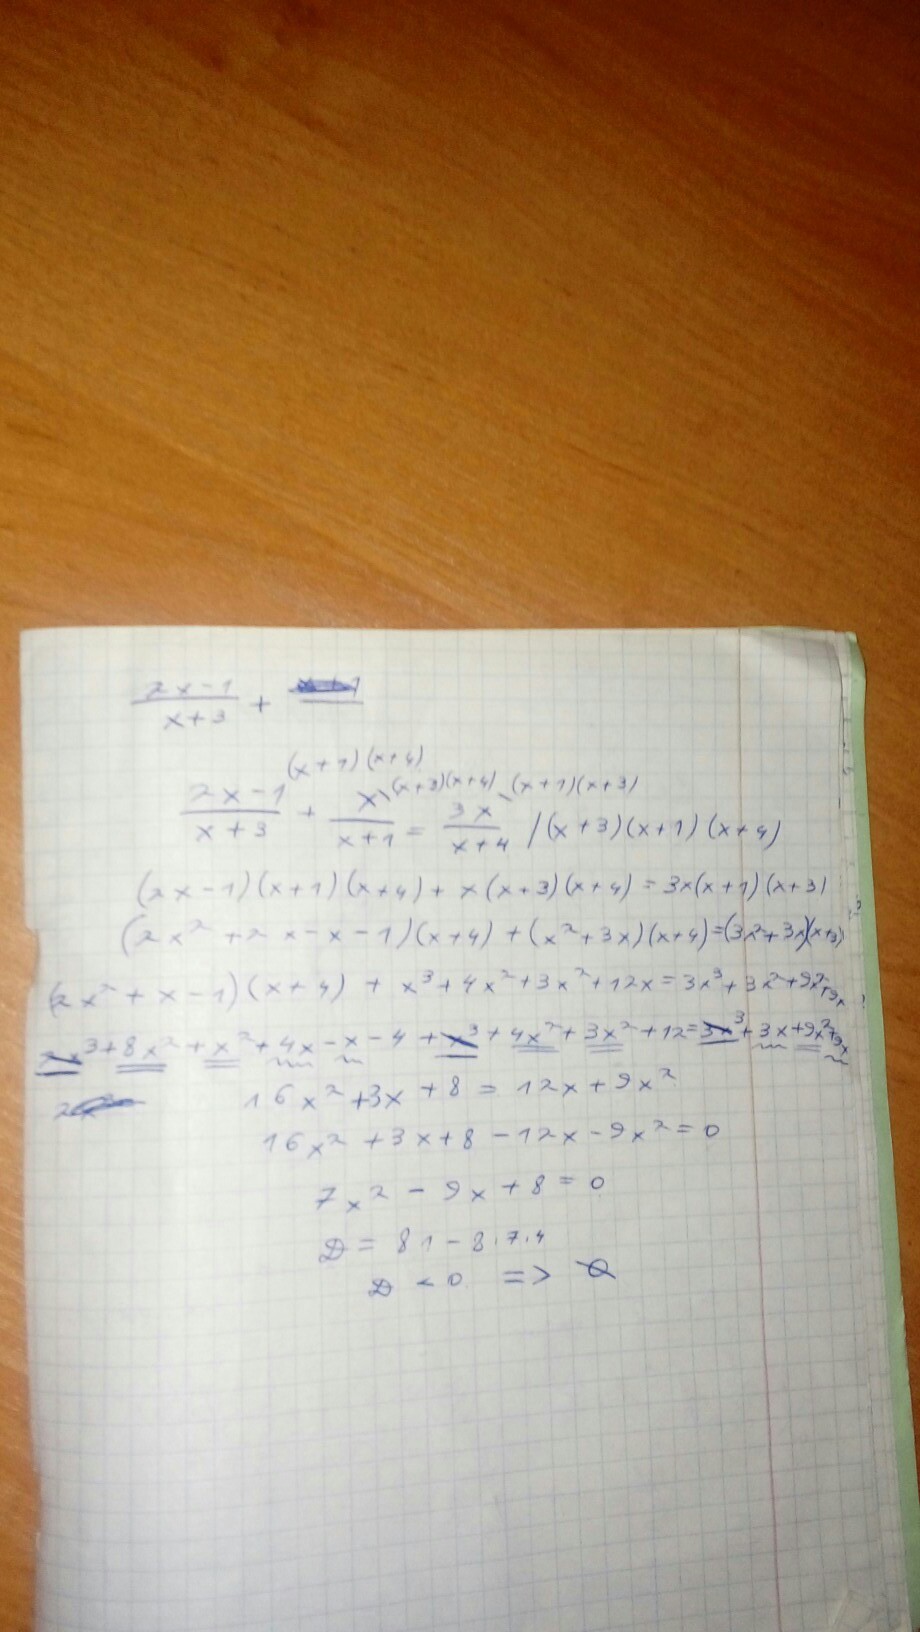 2x-1/x+3 +
(x+1)(x+4) (x+3)(x+4) (x+1)(x+3)
2x-1/x+3 + x/x+1 = 3x/x+4 /(x+3)(x+1)(x+4)
(2x-1)(x+1)(x+4)+x(x+3)(x+4)=3x(x+1)(x+3)
(2x²+2x-x-1)(x+4)+(x²+3x)(x+4)=(3x²+3x)(x+3)
(2x²+x-1)(x+4)+x³+4x²+3x²+12x=3x³+3x²+9x²+9x
2x³+8x²+x²+4x-x-4+x³+4x²+3x²+12=3x³+3x+9x²+9x
16x²+3x+8=12x+9x²
16x²+3x+8-12x-9x²=0
7x²-9x+8=0
D=81-8·7·4
D<0 => Ø